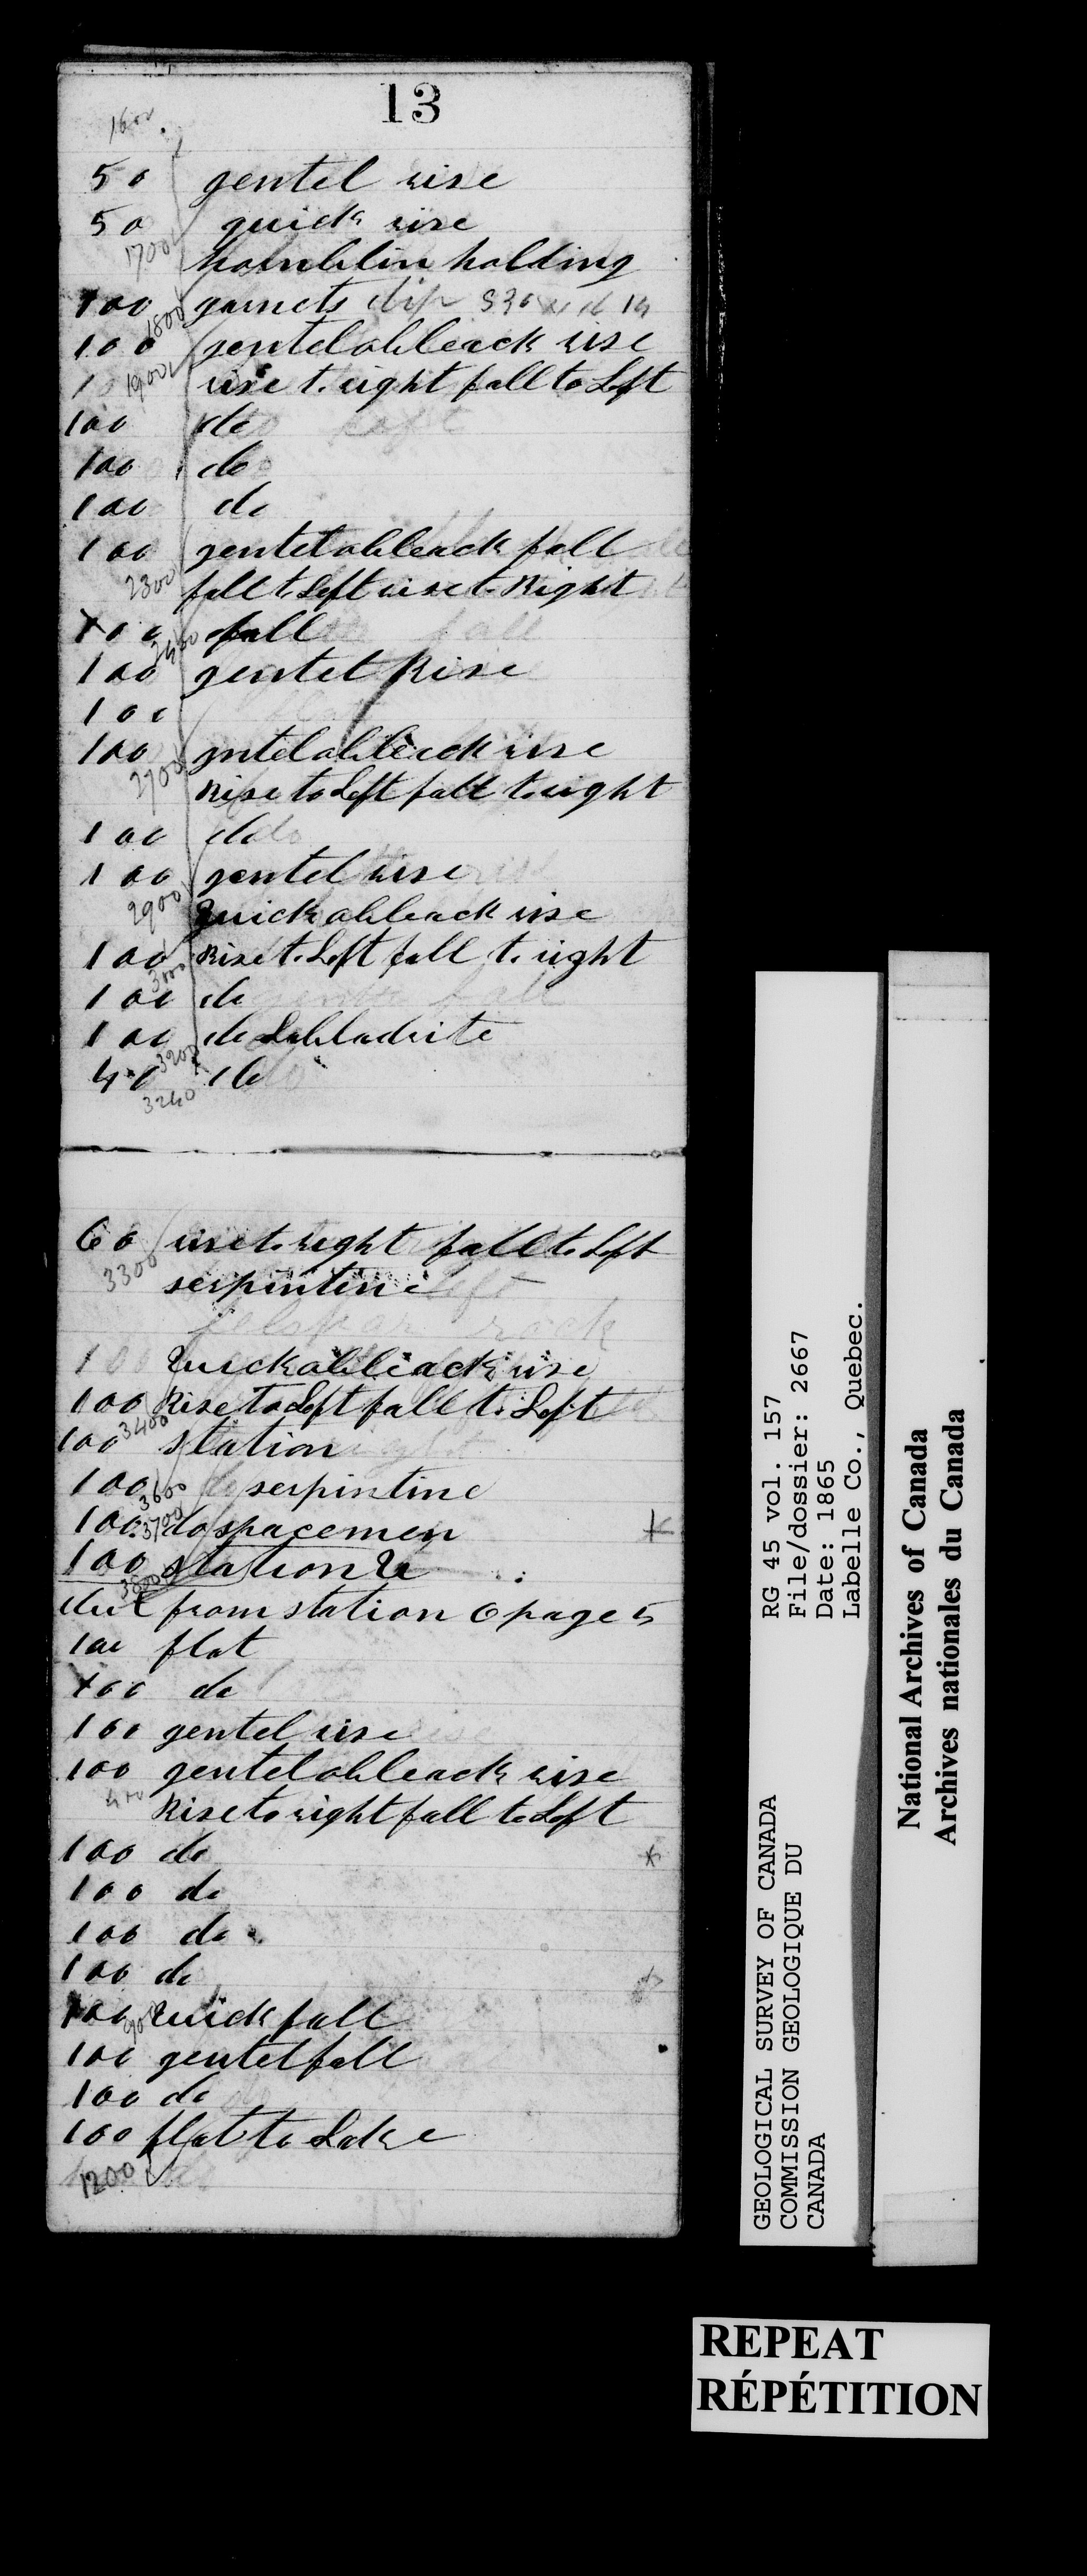 13
1600
50 gentel rise
50 quick rise
1700
hornblin holding
100 garnets dip S30
1800
100 gentel obleack rise
1900
10 rise to right fall to Left
100 do
100 do
100 do
100 gentel obleack fall
2300
fall to Left rise to Right
100 fall
100 gentel Rise
100
100 gntel obleack rise
2700
Rise to Left fall to right
100 do
100 gentel rise
2900
Quick obleack rise
100 Rise to Left fall to right
3000
100 do
100 do Labladrite
3200
40 do
3240
60 rise to right fall to Left
3300
serpintine
felspar rock
100 Quick obleack rise
100 Rise to Left fall to Left
3400
100 station
100 do serpintine
3600
100 do spacemen
3700
100 station
3800
from station 6 page 5
100 flat
100 do
100 gentel rise
100 gentel obleack rise
400
Rise to right fall to Left
100 do
100 do
100 do
100 do
100 Quick fall
900
100 gentel fall
100 do
100 flat to Lake
1200
GEOLOGICAL SURVEY OF CANADA
COMMISSION GEOLOGIQUE DU
CANADA
RG 45 vol. 157
File/dossier: 2667
Date: 1865
Labelle Co., Quebec.
National Archives of Canada
Archives nationales du Canada
REPEAT
RÉPÉTITION